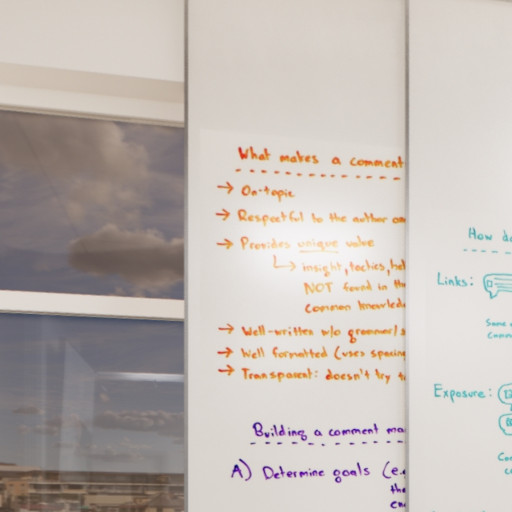 What makes a comment
→ On-topic
→ Respectful to the author
→ Provides unique value
↳ insight, tactics,
NOT found in
Common
→ Well-written w/o grammar/
→ Well formatted (uses spacing
→ Transparent: doesn't try
Building a comment
A) Determine goals (e.
How
Links:
Exposure: